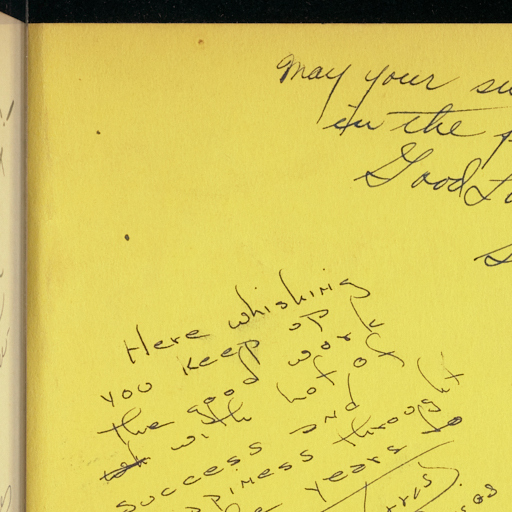 May your su
in the p
Good Lu
S
Here whishing
you keep up
the good work
with lot of
success and
ppiness throught
years to